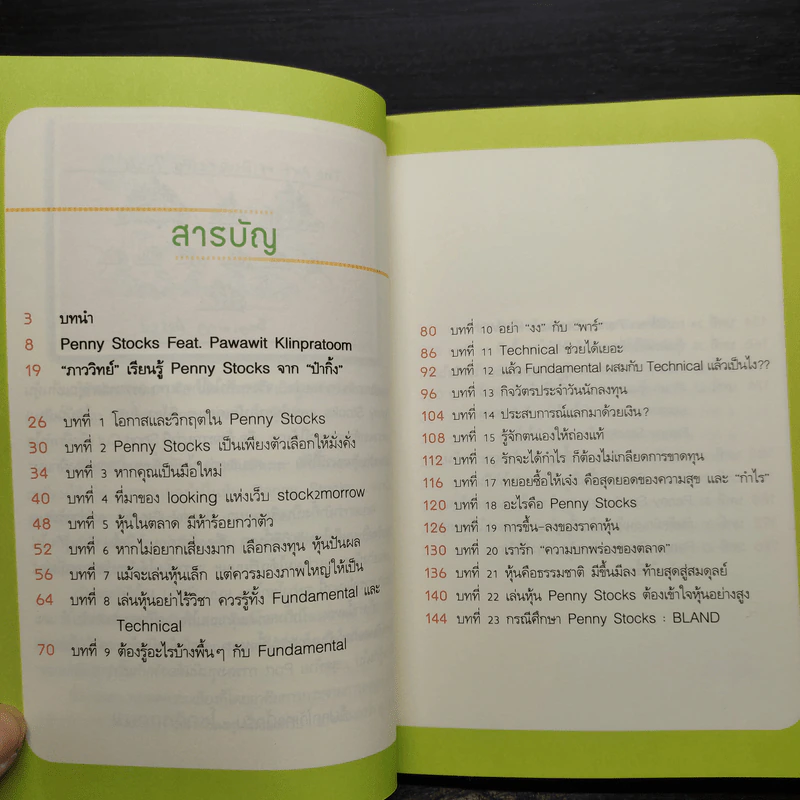 สารบัญ
3 บทนำ
8 Penny Stocks Feat. Pawawit Klinpratoom
19 "ภาววิทย์" เรียนรู้ Penny Stocks จาก "ป๋ากิ้ง"
26 บทที่ 1 โอกาสและวิกฤตใน Penny Stocks
30 บทที่ 2 Penny Stocks เป็นเพียงตัวเลือกให้มั่งคั่ง
34 บทที่ 3 หากคุณเป็นมือใหม่
40 บทที่ 4 ที่มาของ looking แห่งเว็บ stock2morrow
48 บทที่ 5 หุ้นในตลาด มีห้าร้อยกว่าตัว
52 บทที่ 6 หากไม่อยากเสี่ยงมาก เลือกลงทุน หุ้นปันผล
56 บทที่ 7 แม้จะเล่นหุ้นเล็ก แต่ควรมองภาพใหญ่ให้เป็น
64 บทที่ 8 เล่นหุ้นอย่าไร้วิชา ควรรู้ทั้ง Fundamental และ
Technical
70 บทที่ 9 ต้องรู้อะไรบ้างพื้นๆ กับ Fundamental
80 บทที่ 10 อย่า "งง" กับ "พาร์"
86 บทที่ 11 Technical ช่วยได้เยอะ
92 บทที่ 12 แล้ว Fundamental ผสมกับ Technical แล้วเป็นไง??
96 บทที่ 13 กิจวัตรประจำวันนักลงทุน
104 บทที่ 14 ประสบการณ์แลกมาด้วยเงิน?
108 บทที่ 15 รู้จักตนเองให้ถ่องแท้
112 บทที่ 16 รักจะได้กำไร ก็ต้องไม่เกลียดการขาดทุน
116 บทที่ 17 ทยอยซื้อให้เจ๋ง คือสุดยอดของความสุข และ "กำไร"
120 บทที่ 18 อะไรคือ Penny Stocks
126 บทที่ 19 การขึ้น-ลงของราคาหุ้น
130 บทที่ 20 เรารัก "ความบกพร่องของตลาด"
136 บทที่ 21 หุ้นคือธรรมชาติ มีขึ้นมีลง ท้ายสุดสู่สมดุลย์
140 บทที่ 22 เล่นหุ้น Penny Stocks ต้องเข้าใจหุ้นอย่างสูง
144 บทที่ 23 กรณีศึกษา Penny Stocks : BLAND